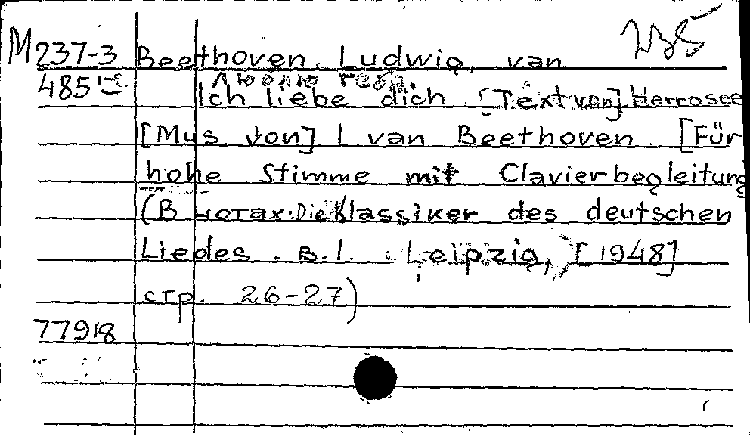 235
M 237-3 Beethoven Ludwig, van
Люблю тебя
485 Ich liebe dich [Text von] Herrosee
[Mus von] L van Beethoven [Für
hohe Stimme mit Clavierbegleitung
(В нотах: Die Klassiker des deutschen
Liedes. B.I. Leipzig, [1948]
стр. 26-27)
77918